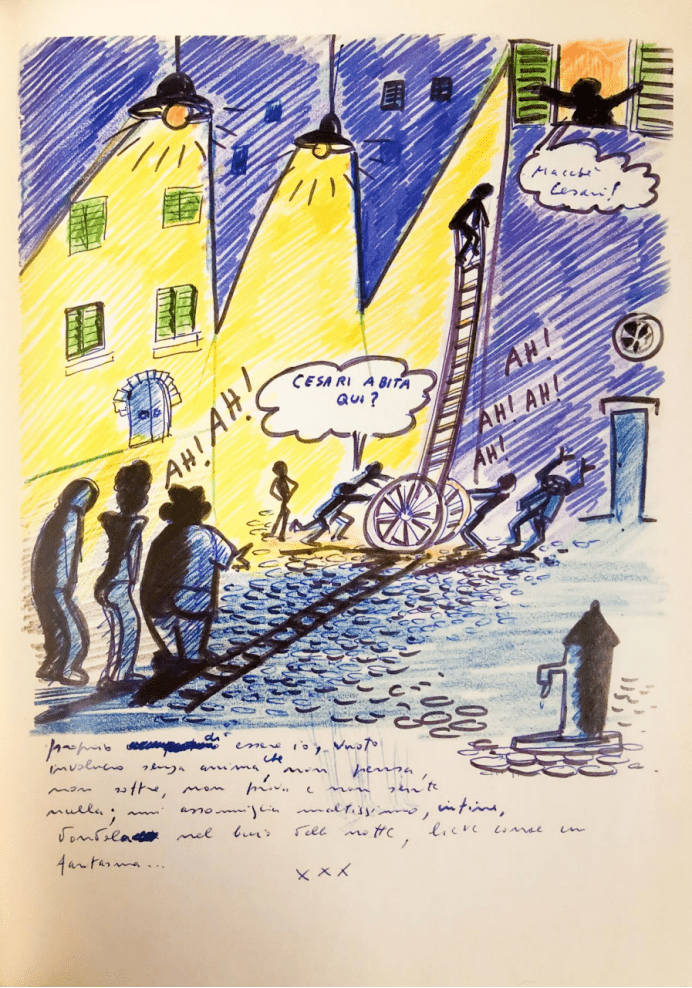 Macchè
Cesari!
AH!
AH! AH!
AH!
CESARI ABITA
QUI?
AH!
AH!
proprio di essere io, vuoto
involucro senza anima che non pensa,
non soffre, non prova e non sente
nulla; mi assomiglia moltissimo, infine,
dondola nel buio della notte, lieve come un
fantasma...
x x x